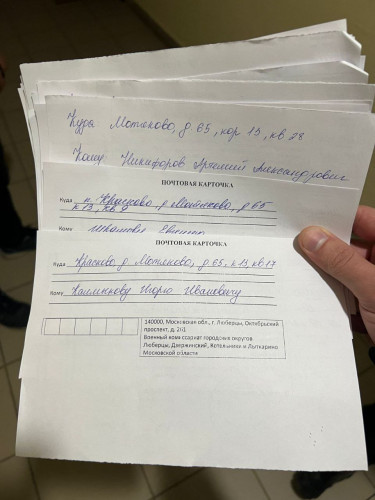 Куда Мотяково, д. 65, кор 13, кв 28
Кому Никифоров Артемий Александрович
ПОЧТОВАЯ КАРТОЧКА
Куда п. Красково, д. Мотяково, д 65
к 13, кв 9
Кому
ПОЧТОВАЯ КАРТОЧКА
Куда Красково, д. Мотяково, д. 65, к 13, кв 17
Кому Игорю Ивановичу
140000, Московская обл., г. Люберцы, Октябрьский
проспект, д. 261
Военный комиссариат городских округов
Люберцы, Дзержинский, Котельники и Лыткарино
Московской области